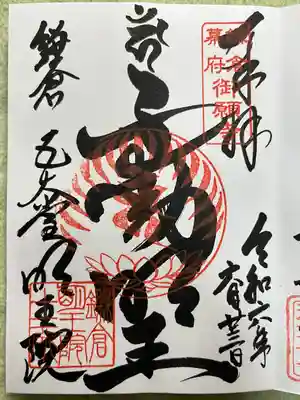 奉拝
幕府御願寺
不動明王
鎌倉 五大堂 明王院
鎌倉
明王院
令和六年
月廿三日